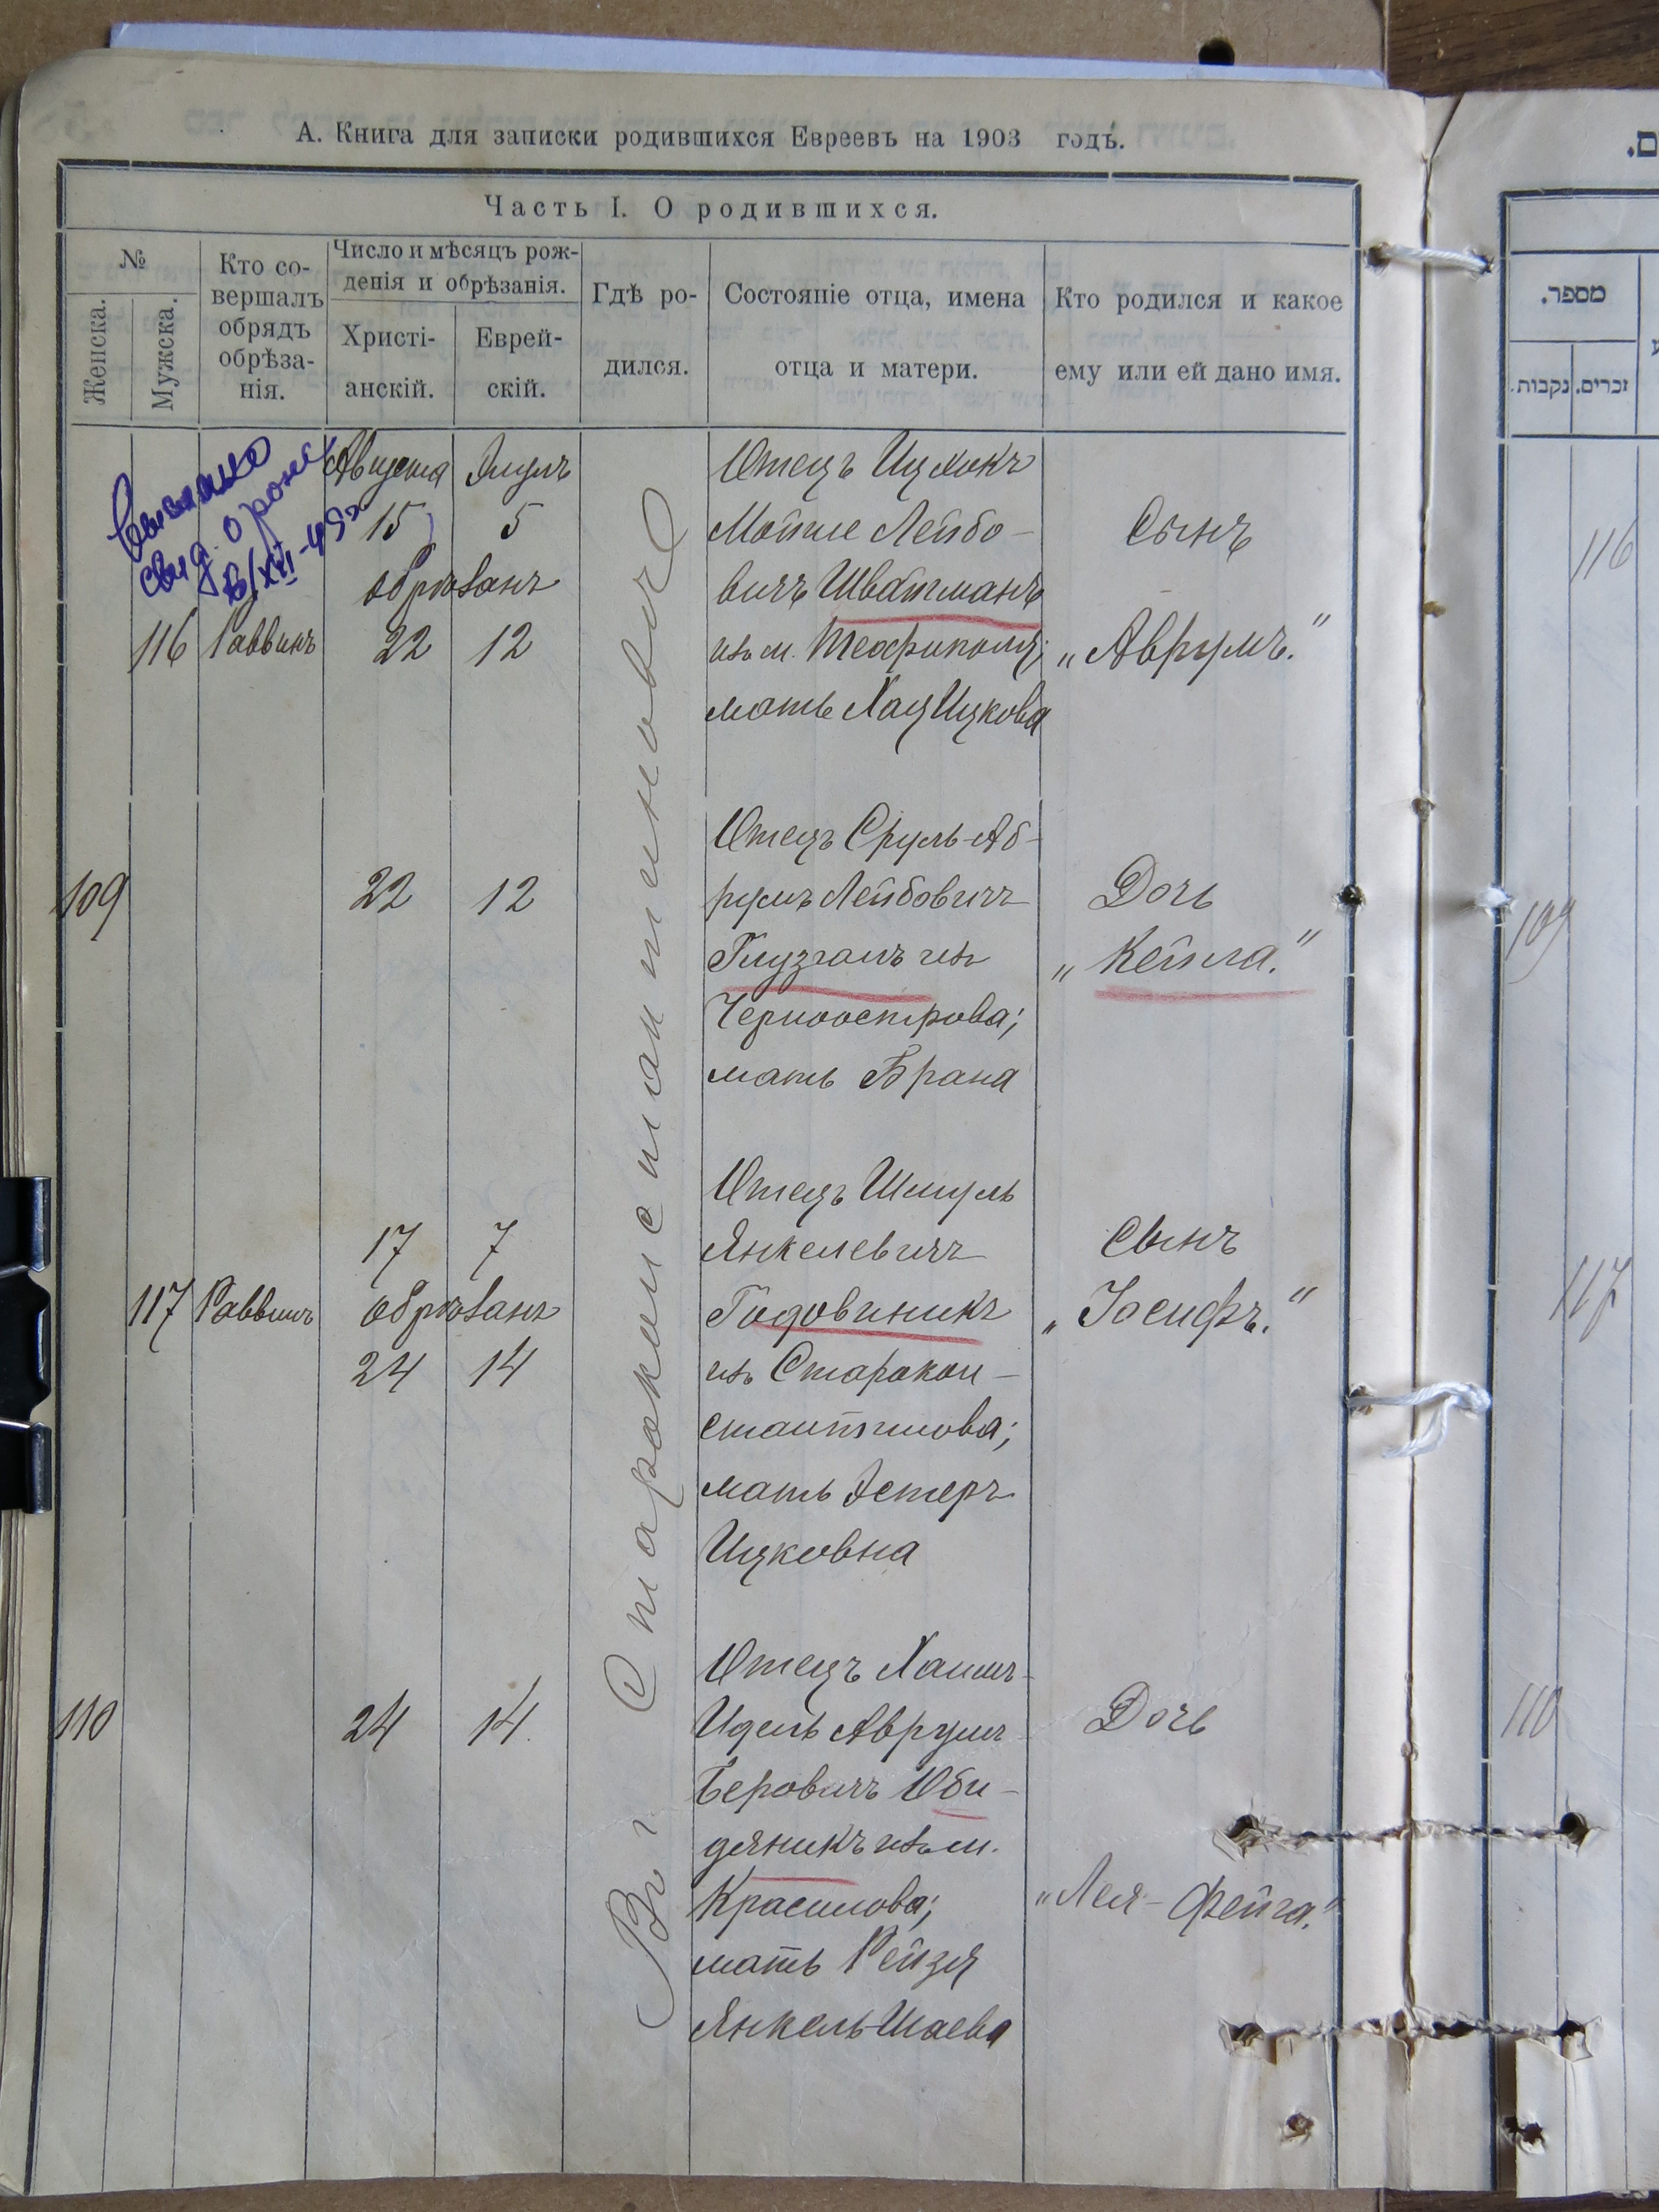 А. Книга для записки родившихся Евреевъ на 1903 годъ.
Часть I. О родившихся.
№
Женска.
Мужска.
Кто со-
вершалъ
обрядъ
обрѣза-
нія.
Число и мѣсяцъ рож-
денія и обрѣзанія.
Христі-
анскій.
Еврей-
скій.
Гдѣ ро-
дился.
Состояніе отца, имена
отца и матери.
Кто родился и какое
ему или ей дано имя.
свид. о рожд.
Августа Элулъ
15 5
обрѣзанъ
116 Раввинъ 22 12
Отецъ Ицхокъ
Мойше Лейбо-
вичъ Швайтманъ
изъ м. Теофиполя;
мать Хая Ицкова
Сынъ
„Аврумъ."
Въ г. Староконстантиновѣ
109 22 12
Отецъ Сруль-Аб-
румъ Лейбовичъ
Глузганъ изъ
Черноострова;
мать Брана
Дочь
„Кейла."
17 7
117 Раввинъ обрѣзанъ
24 14
Отецъ Шмуль
Янкелевичъ
Годовиникъ
изъ Старокон-
стантинова;
мать Эстеръ
Ицковна
Сынъ
„Іосифъ."
110 24 14
Отецъ Хаимъ-
Идель Аврумъ
Беровичъ Оби-
деяникъ изъ м.
Красилова;
мать Рейзя
Янкель-Шаева
Дочь
„Лея-Фейга."
ם.
מספר.
נקבות.
זכרים.
116
109
117
110